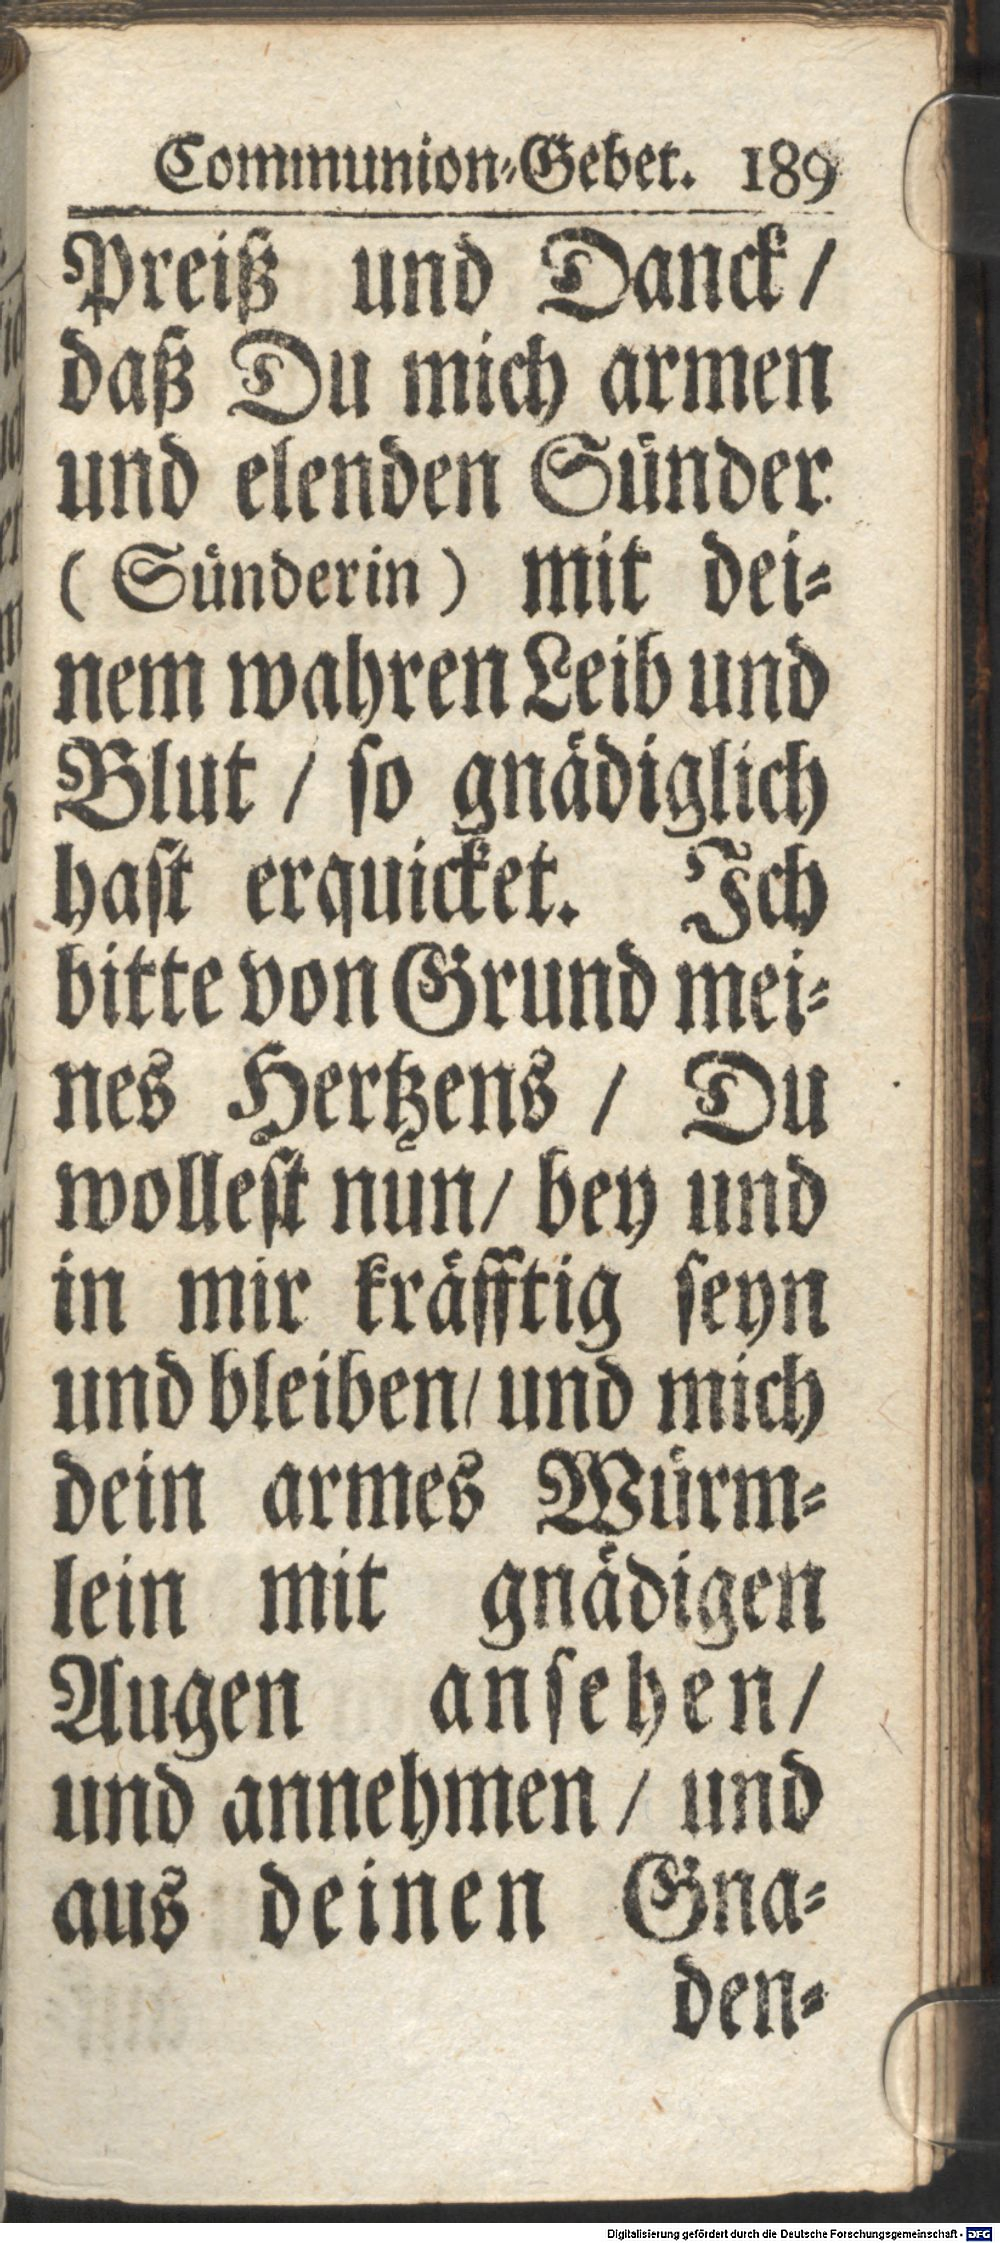 Communion-Gebet. 189
Preiß und Danck/
daß Du mich armen
und elenden Sünder
(Sünderin) mit dei-
nem wahren Leib und
Blut / so gnädiglich
hast erquicket. Ich
bitte von Grund mei-
nes Hertzens / Du
wollest nun/ bey und
in mir kräfftig seyn
und bleiben/ und mich
dein armes Würm-
lein mit gnädigen
Augen ansehen/
und annehmen / und
aus deinen Gna-
den-
Digitalisierung gefördert durch die Deutsche Forschungsgemeinschaft - DFG